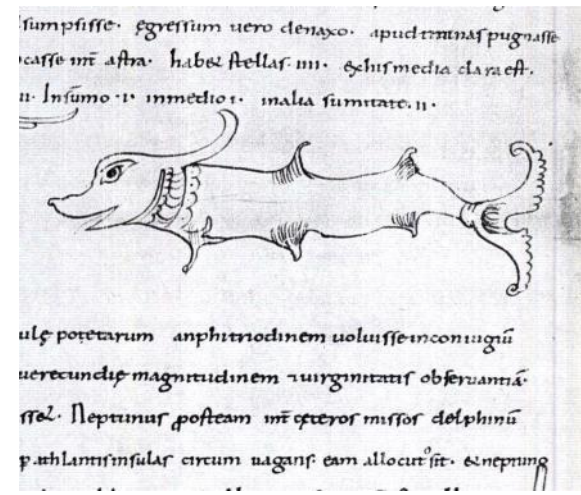 sumpsisse. egressum uero denaxo. apud tminas pugnasse
casse int̄ astra. habet stellas. iiii. ex his media clara est.
ii. In sūmo .i. in medio i. in alia sumitate. ii.
ulę poetarum anphitriodinem uoluisse in coniugiū
uerecundię magnitudinem ⁊ uirginitatis obseruantiā.
sset. Neptunus posteam int̄ cęteros missos delphinū
p athlantis insulas circum uagans. eam allocut' sit. & neptuno